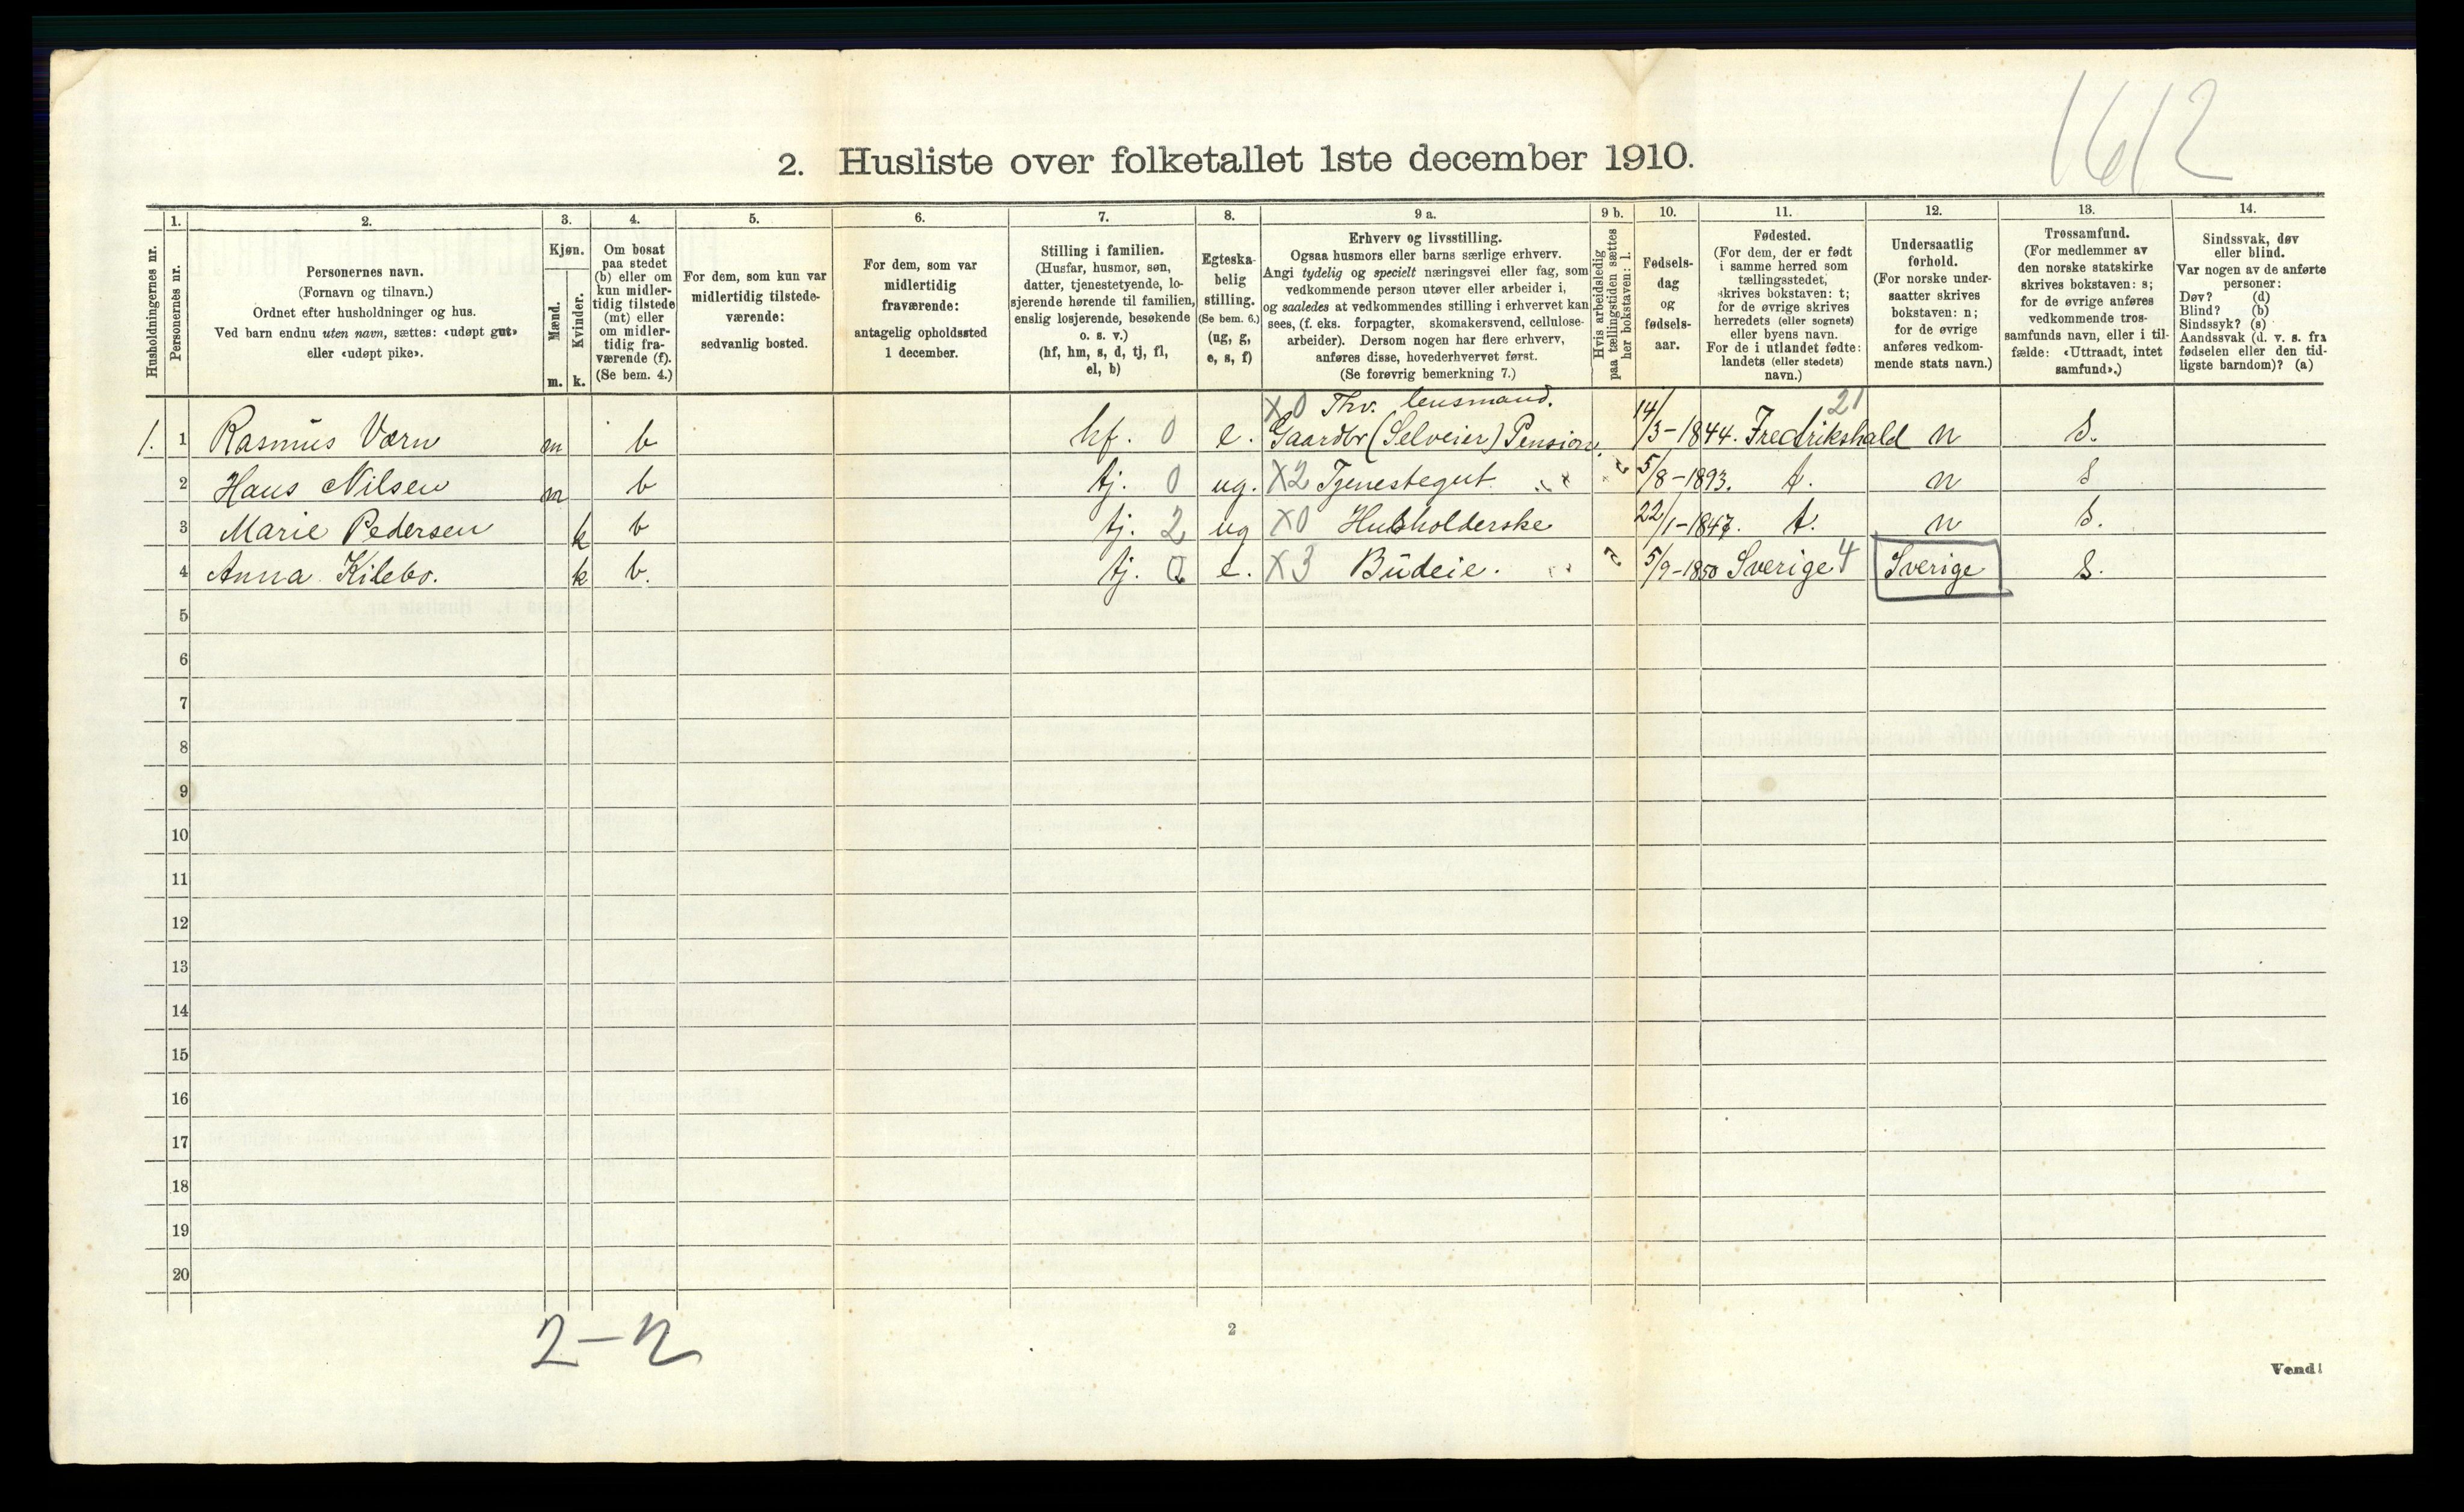 1612
2. Husliste over folketallet 1ste december 1910.
Husholdningernes nr.
1.
Personernes nr.
2.
Personernes navn.
(Fornavn og tilnavn.)
Ordnet efter husholdninger og hus.
Ved barn endnu uten navn, sættes: «udøpt gut»
eller «udøpt pike».
3.
Kjøn.
Mænd.
Kvinder.
m. k.
4.
Om bosat
paa stedet
(b) eller om
kun midler-
tidig tilstede
(mt) eller
om midler-
tidig fra-
værende (f).
(Se bem. 4.)
5.
For dem, som kun var
midlertidig tilstede-
værende:
sedvanlig bosted.
6.
For dem, som var
midlertidig
fraværende:
antagelig opholdssted
1 december.
7.
Stilling i familien.
(Husfar, husmor, søn,
datter, tjenestetyende, lo-
sjerende hørende til familien,
enslig losjerende, besøkende
o. s. v.)
(hf, hm, s, d, tj, fl,
el, b)
8.
Egteska-
belig
stilling.
(Se bem. 6.)
(ug, g,
e, s, f)
9 a.
Erhverv og livsstilling.
Ogsaa husmors eller barns særlige erhverv.
Angi tydelig og specielt næringsvei eller fag, som
vedkommende person utøver eller arbeider i,
og saaledes at vedkommendes stilling i erhvervet kan
sees, (f. eks. forpagter, skomakersvend, cellulose-
arbeider). Dersom nogen har flere erhverv,
anføres disse, hovederhvervet først.
(Se forøvrig bemerkning 7.)
9 b.
Hvis arbeidsledig
paa tællingstiden sættes
her bokstaven: l.
10.
Fødsels-
dag
og
fødsels-
aar.
11.
Fødested.
(For dem, der er født
i samme herred som
tællingsstedet,
skrives bokstaven: t;
for de øvrige skrives
herredets (eller sognets)
eller byens navn.
For de i utlandet fødte:
landets (eller stedets)
navn.)
12.
Undersaatlig
forhold.
(For norske under-
saatter skrives
bokstaven: n;
for de øvrige
anføres vedkom-
mende stats navn.)
13.
Trossamfund.
(For medlemmer av
den norske statskirke
skrives bokstaven: s;
for de øvrige anføres
vedkommende tros-
samfunds navn, eller i til-
fælde: «Uttraadt, intet
samfund».)
14.
Sindssvak, døv
eller blind.
Var nogen av de anførte
personer:
Døv? (d)
Blind? (b)
Sindssyk? (s)
Aandssvak (d. v. s. fra
fødselen eller den tid-
ligste barndom)? (a)
X0 Fhv. lensmand. 21
1. 1 Rasmus Værn m b hf. 0 e. Gaardbr (Selveier) Pension. 14/3-1844. Fredrikshald n S.
2 Hans Nilsen m b tj. 0 ug. X2 Tjenestegut 5/8-1893. t. n S
3 Marie Pedersen k b tj. 2 ug X0 Husholderske 22/1-1847. t. n S.
4 Anna Kilebo. k b. tj. e. X3 Budeie. 5/9-1850 Sverige 4 Sverige S.
5
6
7
8
9
10
11
12
13
14
15
16
17
18
19
20
2-2
2
Vend!